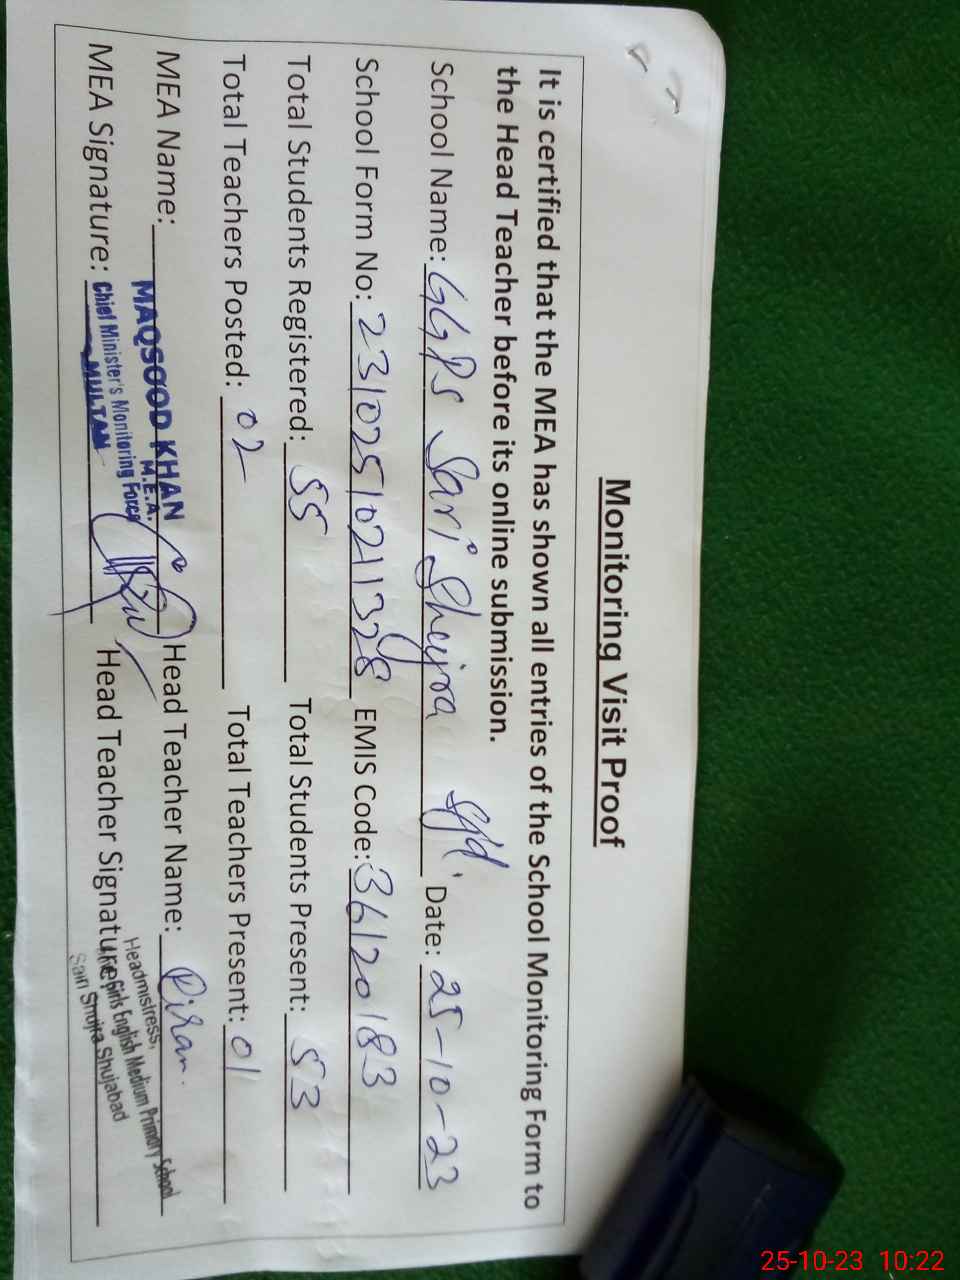 Monitoring Visit Proof
It is certified that the MEA has shown all entries of the School Monitoring Form to
the Head Teacher before its online submission.
School Name: GGPS Sari Shujra Sjd. Date: 25-10-23
School Form No: 23102510211328 EMIS Code: 36120183
Total Students Registered: 55 Total Students Present: 53
Total Teachers Posted: 02 Total Teachers Present: 01
MEA Name: Head Teacher Name:
MAQSOOD KHAN
M.E.A.
Chief Minister's Monitoring Force
MULTAN
MEA Signature: Head Teacher Signature:
Headmistress,
Girls English Medium Primary School
Sain Shujra Shujabad
25-10-23 10:22